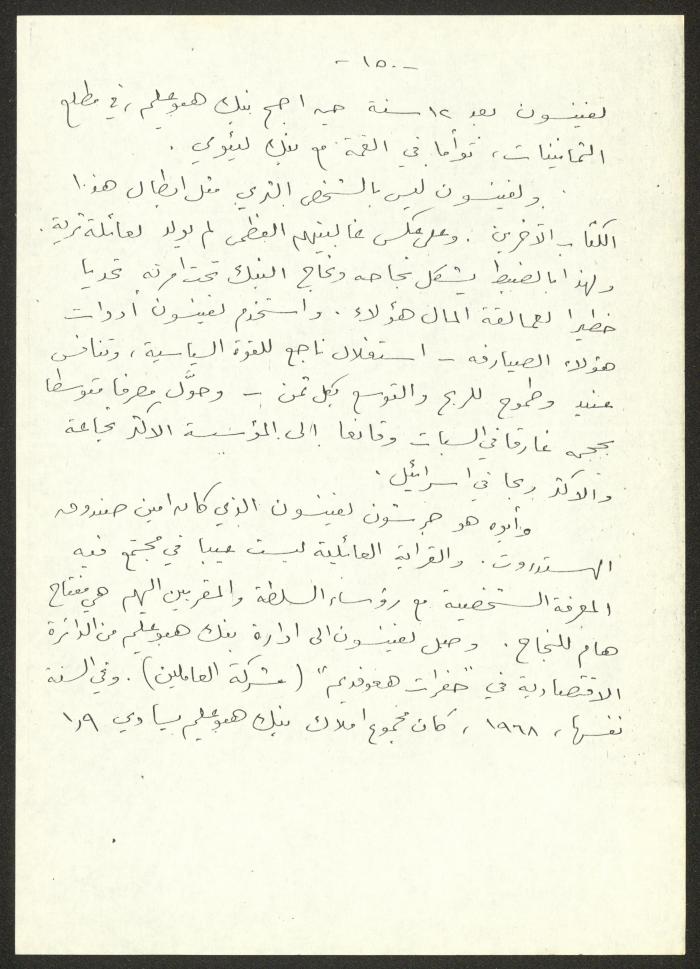 - ١٥٠ -
لفينسون بعد ١٢ سنة حين اصبح بنك هبوعليم، في مطلع
الثمانينات، توأما في القمة مع بنك ليئومي.
ولفينسون ليس بالشخص الثري مثل ابطال هذا
الكتاب الآخرين. وعلى عكس غالبيتهم العظمى لم يولد لعائلة ثرية.
ولهذا بالضبط يشكل نجاحه ونجاح البنك تحت امرته تحديا
خطيرا لعمالقة المال هؤلاء. واستخدم لفينسون أدوات
هؤلاء الصيارفه - استغلال ناجع للقوة السياسية، وتنافس
عنيد وطموح للربح والتوسع بكل ثمن - وحوَّل مصرفا متوسطا
بحجمه غارقا في السبات وقانعا الى المؤسسة الاكثر نجاعة
والاكثر ربحا في اسرائيل.
وأبوه هو جرشون لفينسون الذي كان امين صندوق
الهستدروت. والقرابة العائلية ليست عيبا في مجتمع فيه
المعرفة الشخصية مع رؤساء السلطة والمقربين اليهم هي مفتاح
هام للنجاح. وصل لفينسون الى ادارة بنك هبوعليم من الدائرة
الاقتصادية في "حفرات هعوفديم" (شركة العاملين). وفي السنة
نفسها، ١٩٦٨، كان مجموع املاك بنك هبوعليم يساوي ١,٩